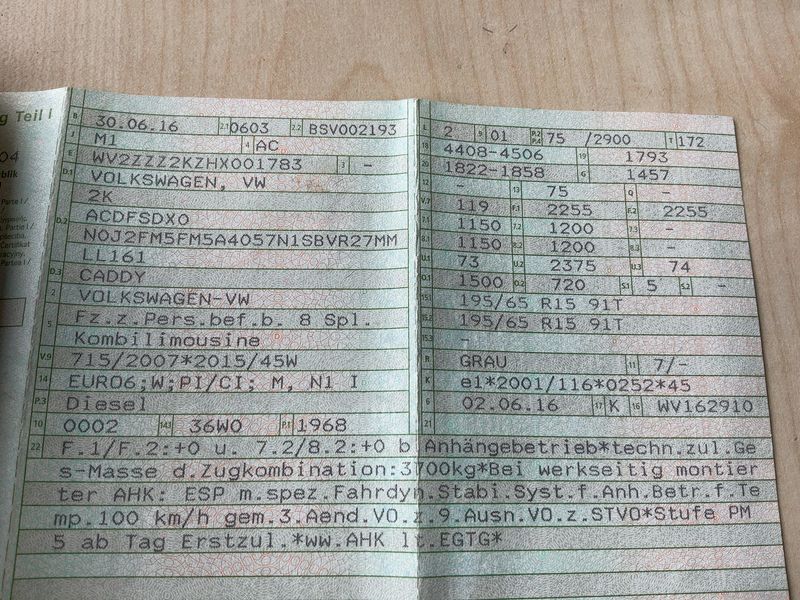 g Teil I
B 30.06.16 2.1 0603 2.2 BSV002193
J M1 4 AC
E WV2ZZZ2KZHX001783 3 -
D.1 VOLKSWAGEN, VW
2K
D.2 ACDFSDX0
N0J2FM5FM5A4057N1SBVR27MM
LL161
D.3 CADDY
2 VOLKSWAGEN-VW
5 Fz.z.Pers.bef.b. 8 Spl.
Kombilimousine
V.9 715/2007*2015/45W
14 EURO6;W;PI/CI; M, N1 I
P.3 Diesel
10 0002 14.1 36W0 P.1 1968
L 2 9 01 P.2 P.4 75 /2900 T 172
18 4408-4506 19 1793
20 1822-1858 G 1457
12 - 13 75 Q -
V.7 119 F.1 2255 F.2 2255
7.1 1150 7.2 1200 7.3 -
8.1 1150 8.2 1200 8.3 -
U.1 73 U.2 2375 U.3 74
O.1 1500 O.2 720 S.1 5 S.2 -
15.1 195/65 R15 91T
15.2 195/65 R15 91T
15.3 -
R GRAU 11 7/-
K e1*2001/116*0252*45
6 02.06.16 17 K 16 WV162910
21
22 F.1/F.2:+0 u. 7.2/8.2:+0 b Anhängebetrieb*techn.zul.Ge
s-Masse d.Zugkombination:3700kg*Bei werkseitig montier
ter AHK: ESP m.spez.Fahrdyn.Stabi.Syst.f.Anh.Betr.f.Te
mp.100 km/h gem.3.Aend.VO.z.9.Ausn.VO.z.STVO*Stufe PM
5 ab Tag Erstzul.*ww.AHK lt.EGTG*